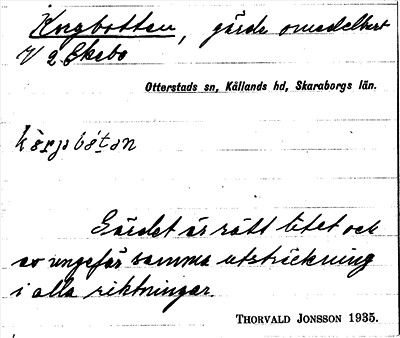 Korgbotten, gärde omedelbart
V 2 Ekebo
Otterstads sn, Kållands hd, Skaraborgs län.
Gärdet är rätt litet och
av ungefär samma utsträckning
i alla riktningar.
THORVALD JONSSON 1935.